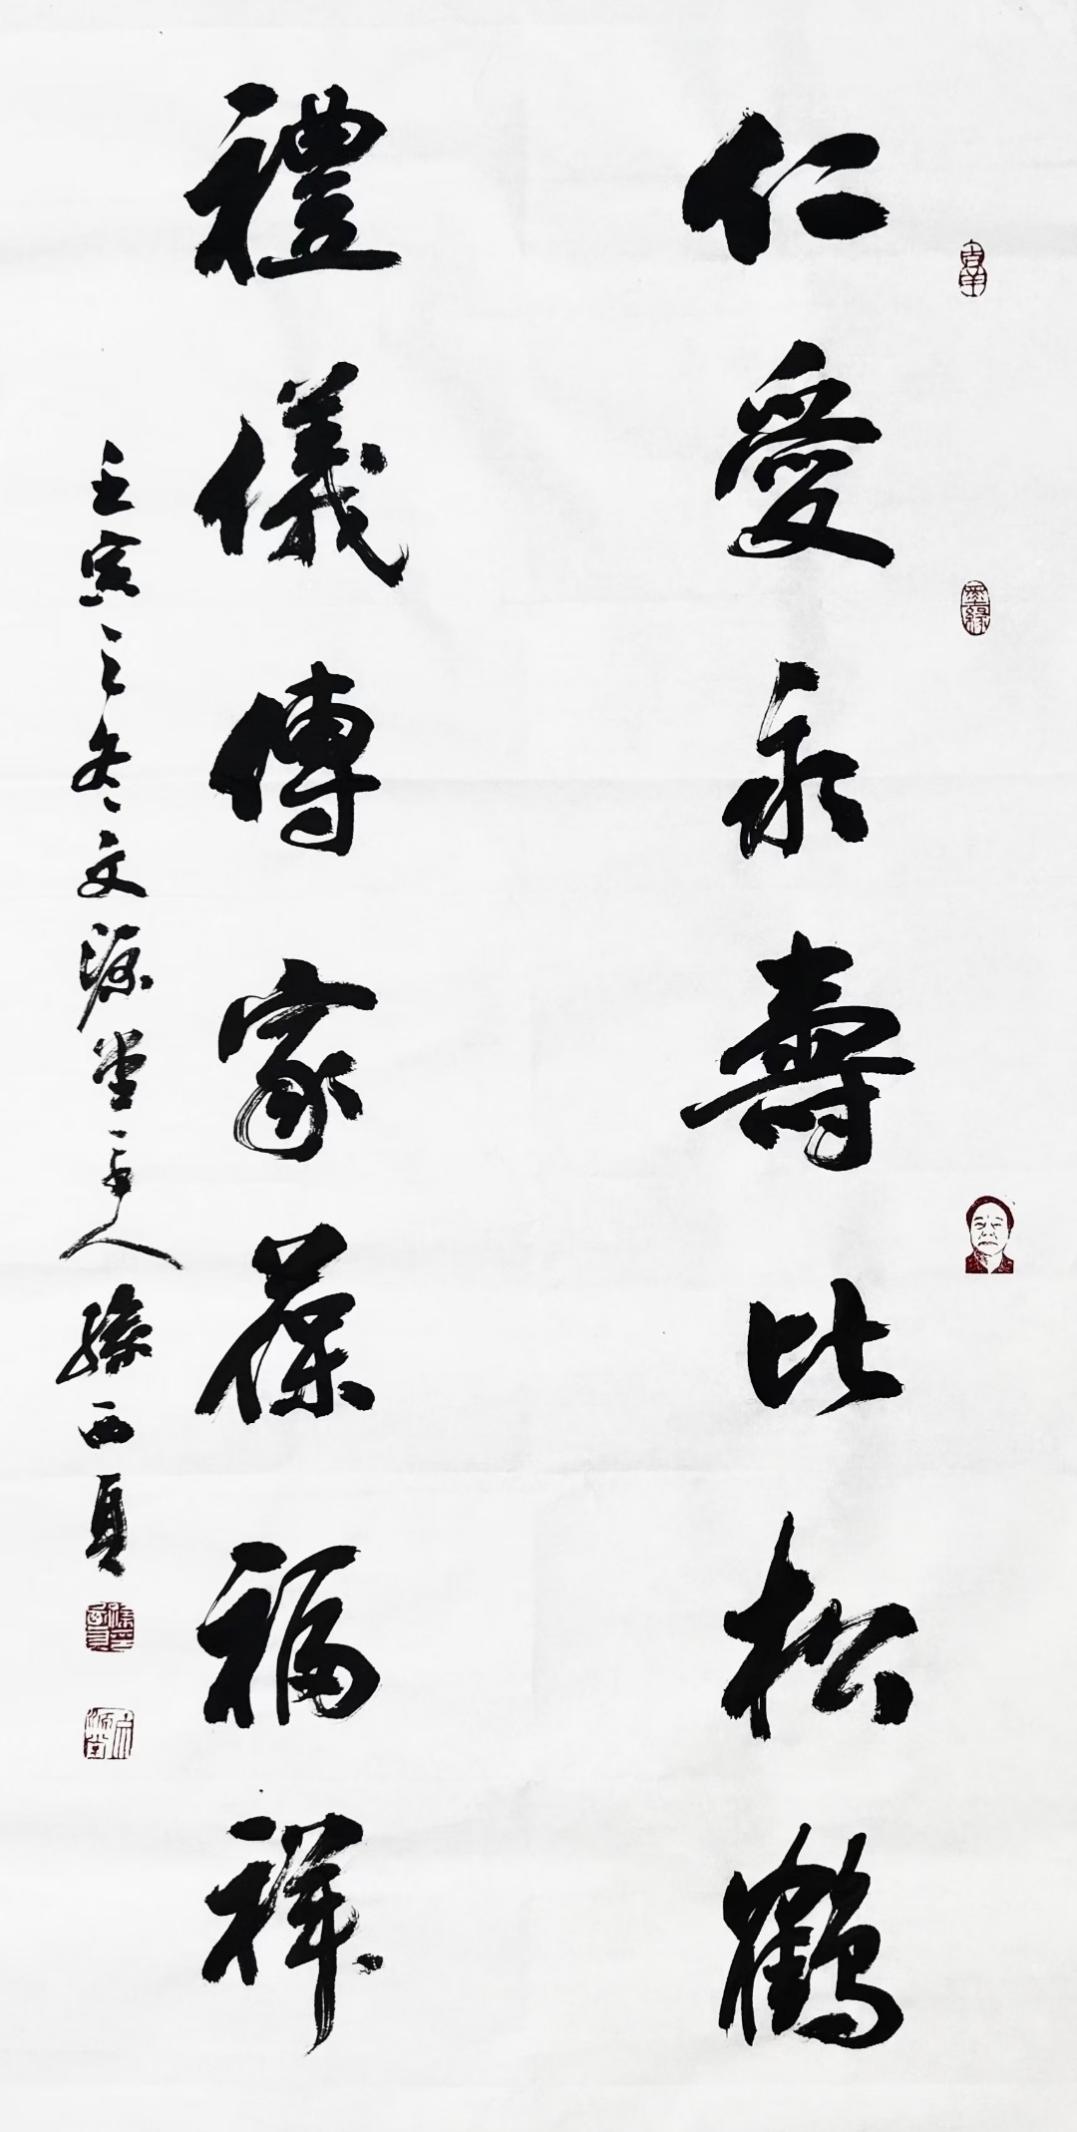 仁愛永壽比松鶴
禮儀傳家葆福祥
壬寅之冬文源堂主人孫西夏
墨緣